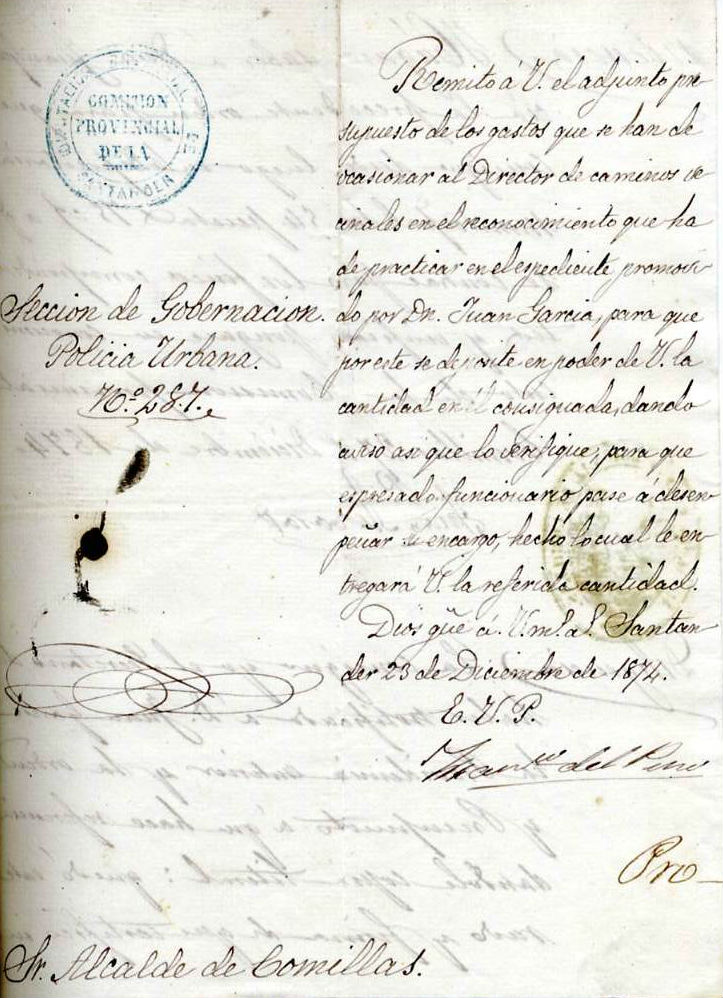 COMISION
PROVINCIAL
DE LA
SANTANDER
Seccion de Gobernacion.
Policia Urbana.
Nº. 287.
Remito á V. el adjunto pre
supuesto de los gastos que se han de
ocasionar al Director de caminos ve
cinales en el reconocimiento que ha
de practicar en el espediente promovi
do por Dn. Juan Garcia, para que
por este se deposite en poder de V. la
cantidad en él consignada, dando
aviso asi que lo verifique, para que
espresado funcionario pase á desem
peñar su encargo, hecho lo cual le en
tregará V. la referida cantidad.
Dios gue á V. m.s a.s Santan
der 23 de Diciembre de 1874.
E. V. P.
del Pino
Pro-
Sr. Alcalde de Comillas.